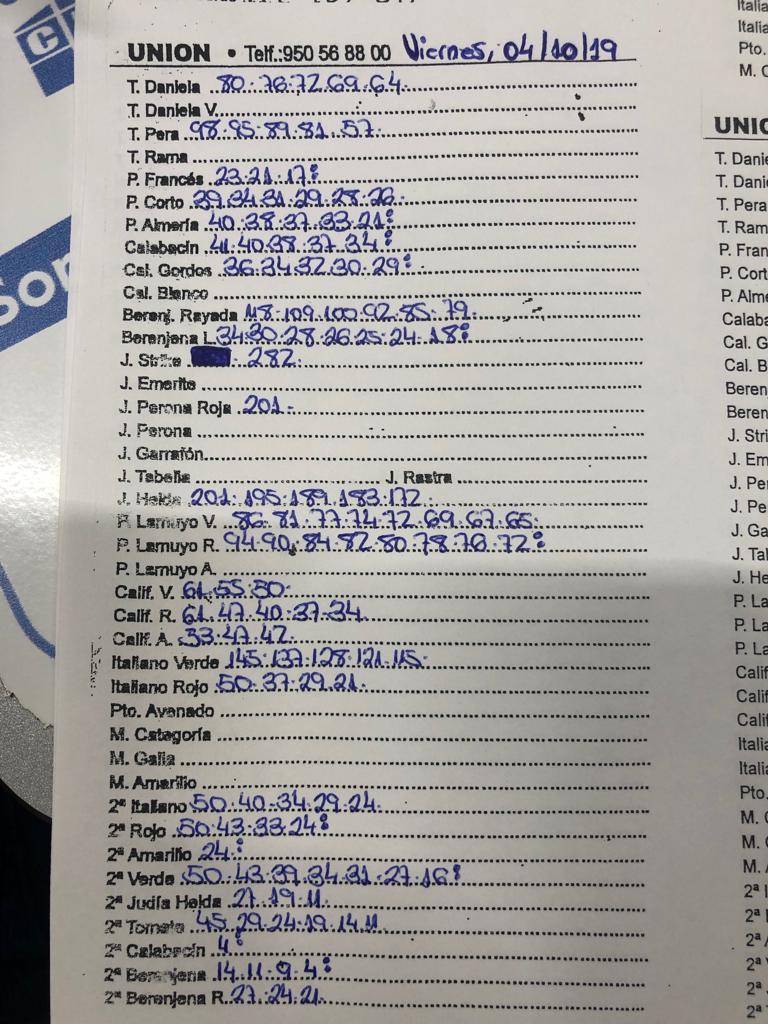 UNION • Telf.:950 56 88 00 Viernes, 04/10/19
T. Daniela 80.76.72.69.64.
T. Daniela V.
T. Pera 98.95.89.81.57.
T. Rama
P. Francés 23.21.17:
P. Corto 39.34.31.29.28.26.
P. Almería 40.38.37.33.21:
Calabacín 41.40.38.37.34:
Cal. Gordos 36.34.32.30.29:
Cal. Blanco
Berenj. Rayada 118.109.100.92.85.79.
Berenjena L. 34.30.28.26.25.24.18:
J. Strike 282.
J. Emerite
J. Perona Roja 201.
J. Perona
J. Garrafón
J. Tabella J. Rastra
J. Helda 201.195.189.183.172.
P. Lamuyo V. 86.81.77.74.72.69.67.65.
P. Lamuyo R. 94.90.84.82.80.78.76.72:
P. Lamuyo A.
Calif. V. 61.55.50.
Calif. R. 61.47.40.37.34.
Calif. A. 47.42.
Italiano Verde 145.137.128.121.115.
Italiano Rojo 50.37.29.21.
Pto. Avenado
M. Categoría
M. Galia
M. Amarillo
2ª Italiano 50.40.34.29.24.
2ª Rojo 50.43.33.24:
2ª Amarillo 24:
2ª Verde 50.43.39.34.31.27.16:
2ª Judía Helda 27.19.11.
2ª Tomate 45.29.24.19.14.11.
2ª Calabacín 4:
2ª Berenjena 14.11.9.4:
2ª Berenjena R. 27.24.21.
Italia
Italia
Pto.
M. C
UNIO
T. Danie
T. Dani
T. Pera
T. Ram
P. Fran
P. Cort
P. Alme
Calaba
Cal. G
Cal. B
Beren
Beren
J. Stri
J. Em
J. Per
J. Pe
J. Ga
J. Tal
J. He
P. La
P. La
P. La
Calif
Calif
Calif
Italia
Italia
Pto.
M. C
M. G
M. A
2ª I
2ª
2ª
2ª V
2ª
2ª